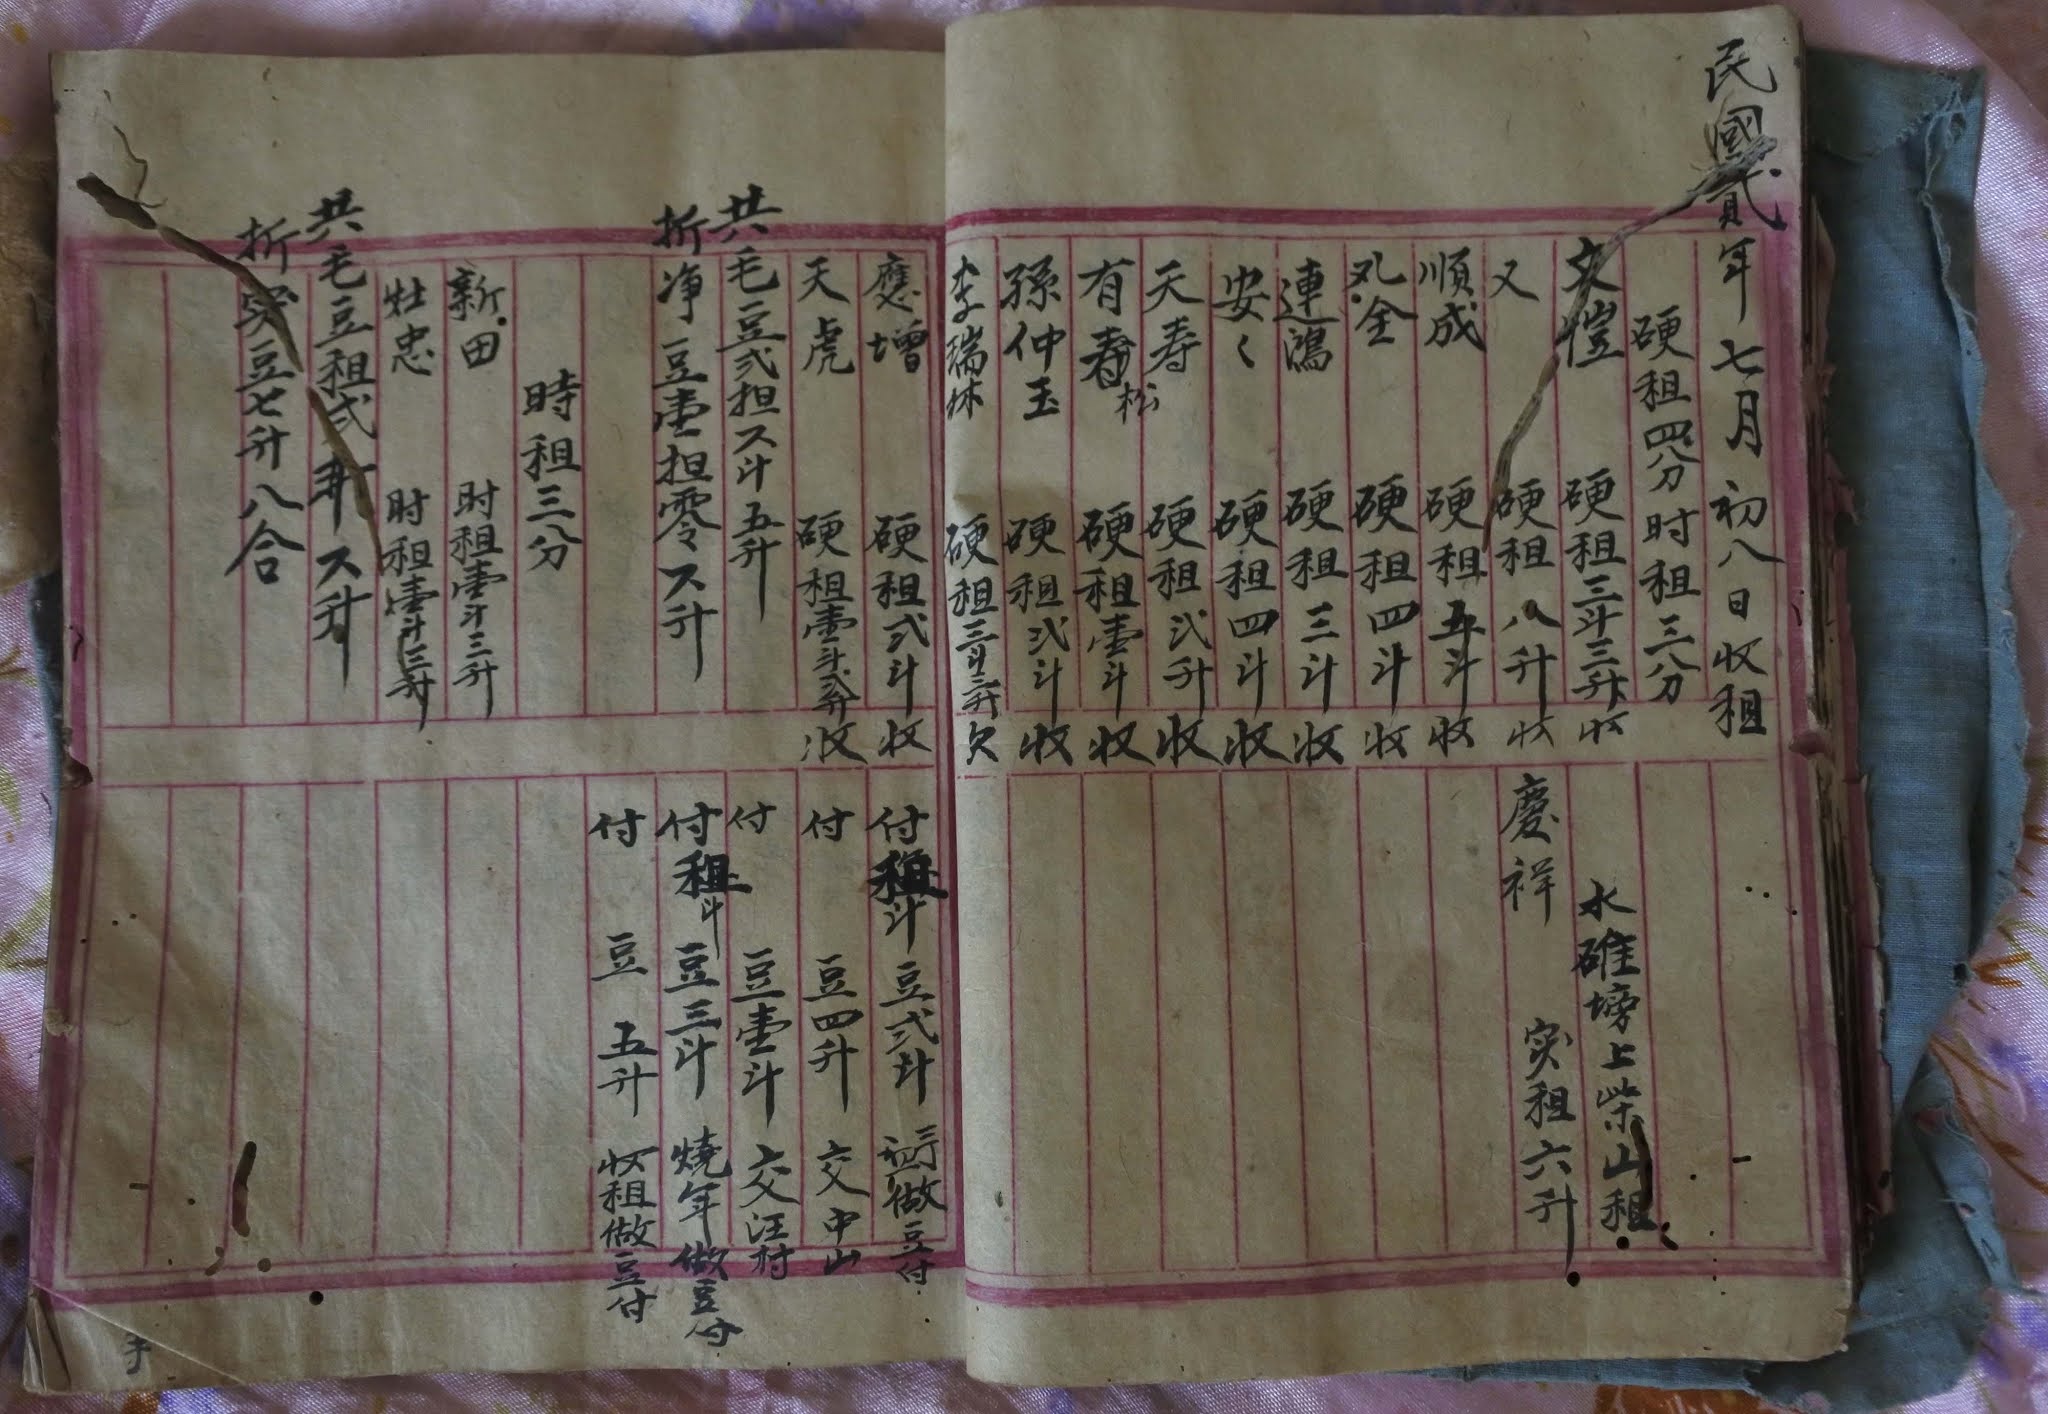 民國貳年七月初八日收租
硬租四分时租三分
文愷 硬租三斗三升 收
又 硬租八升 收
順成 硬租五斗 收
全 硬租四斗 收
連鴻 硬租三斗 收
安〻 硬租四斗 收
天寿 硬租弍升 收
有壽松 硬租壹斗 收
孫仲玉 硬租弍斗 收
李瑞林 硬租三斗三升 欠
水碓塝上柴山租
慶祥 实租六升
應增 硬租弍斗 收
天虎 硬租壹斗弍升 收
共毛豆弍担〤斗五升
折净豆壹担零〤升
時租三分
新田 时租壹斗三升
灶忠 时租壹斗三升
共毛豆租弍斗〤升
折实豆七升八合
付租斗 豆弍斗 做豆付
付 豆四升 交中山
付 豆壹斗 交汪村
付租斗 豆三斗 燒年做豆付
付 豆五升 收租做豆付